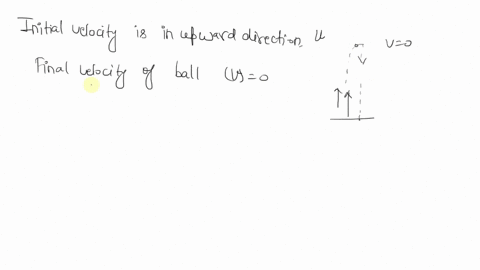 Initial velocity is in upward direction, u
v=0
Final velocity of ball (v)=0